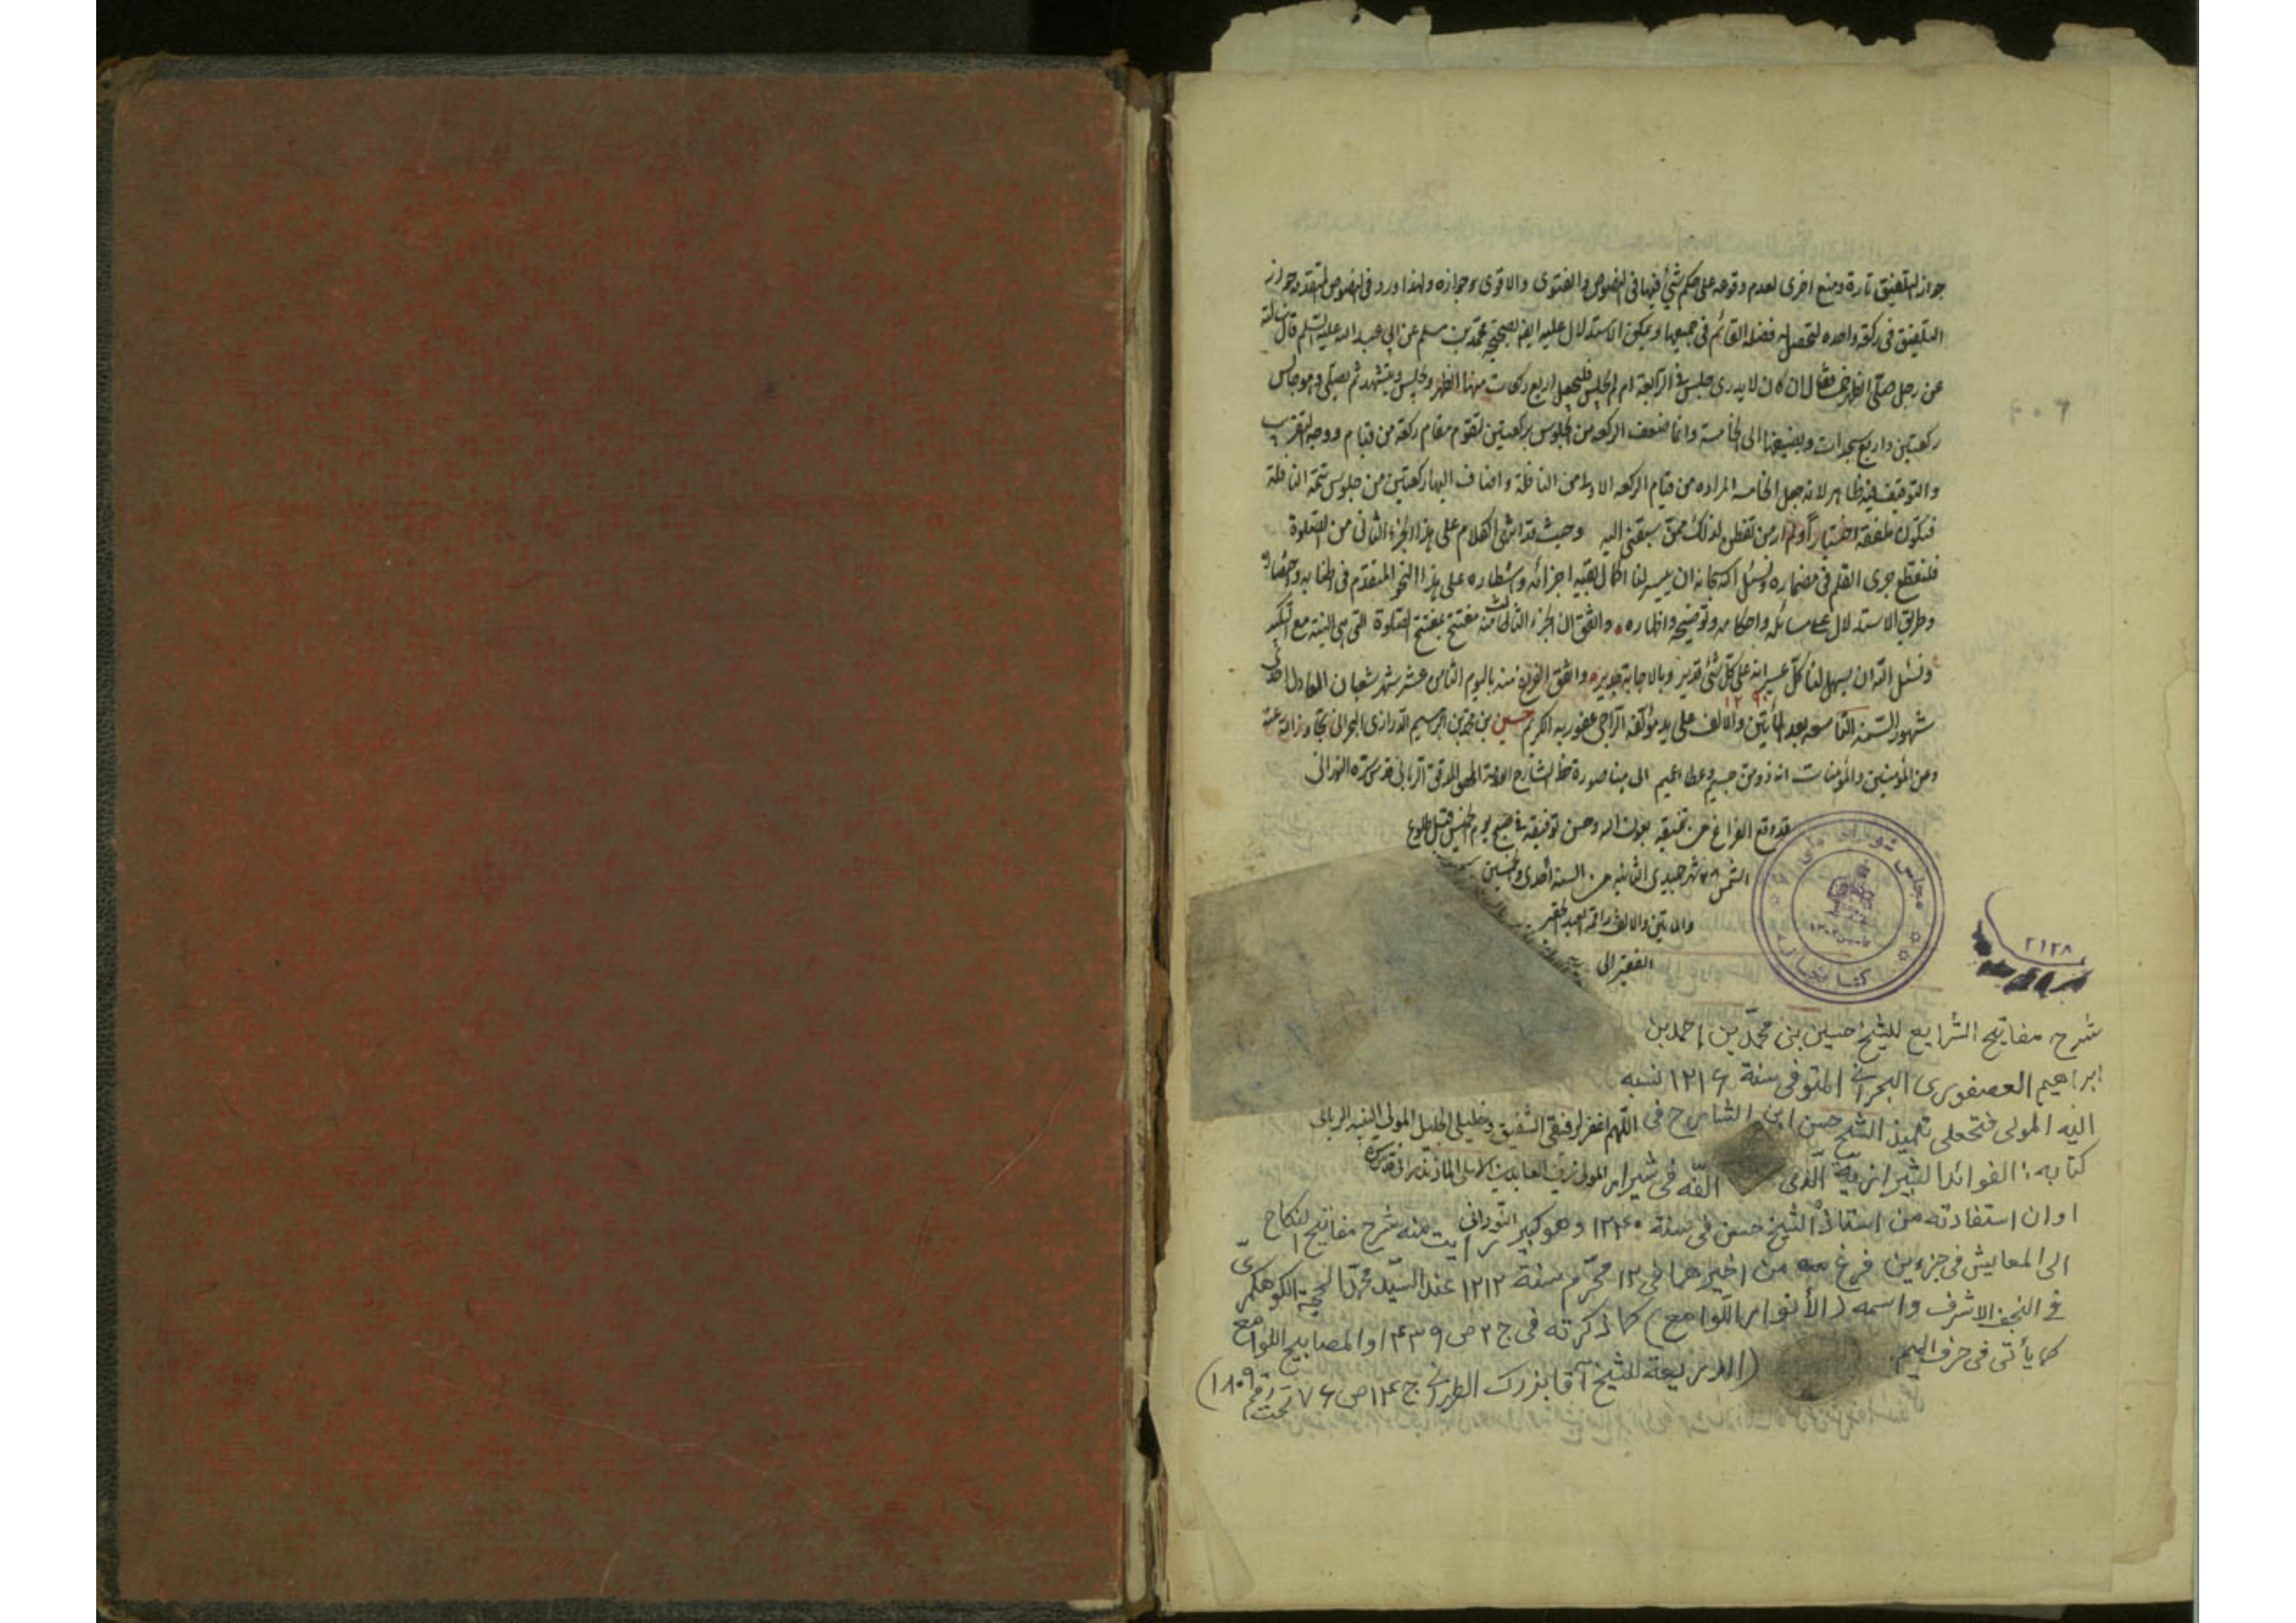 جواز التلفيق تارة ومنع اخرى لعدم وقوفه على حكم شئ فيها فى النصوص والفتوى والاقوى جوازه ولهذا ورد فى النصوص المتقدمة جواز
التلفيق فى ركعة واحدة لتحصل له فضلة القائم فى جميعها ويمكن الاستدلال عليه ايضا بصحيحة محمد بن مسلم عن ابى عبد الله عليه السلم قال سالته
عن رجل صلى الظهر خمسا فقال ان كان لا يدرى جلس فى الرابعة ام لم يجلس فليجعل اربع ركعات منها الظهر ويجلس ويتشهد ثم يصلى وهو جالس
ركعتين واربع سجدات ويضيفها الى الخامسة وانما ضعف الركعة من الجلوس بركعتين لتقوم مقام ركعة من قيام ووجه التقريب
والتوقيف فيه ظاهر لانه جعل الخامسة المزادة من قيام الركعة الاولى من النافلة واضاف اليها ركعتين من جلوس تتمة النافلة
فتكون ملفقة اختيارا ولم ار من تفطن لذلك ممن سبقنى اليه وحيث قد انتهى الكلام على هذا الجزء الثانى من الصلوة
فلنقطع جرى القلم فى مضماره ونسئل الله سبحانه ان ييسر لنا اكمال بقية اجزائه واشطاره على هذا النحو المتقدم فى اطنابه واختصاره
وطريق الاستدلال على مسائله واحكامه وتوضيحه واظهاره والثق ان الجزء الثالث منه مفتتح بمفتتح الصلوة التى هى النية مع التكبير
ونسئل الله ان يسهل لنا كل عسير انه على كل شئ قدير وبالاجابة جدير واتفق الفراغ منه باليوم الثامن عشر شهر شعبان احدى
شهور السنة التاسعة بعد المأتين والالف على يد مؤلفه الراجى عفو ربه الكريم حسين بن محمد بن ابراهيم الدرازى البحرانى تجاوز الله عنه
وعن المؤمنين والمؤمنات انه ذو من جسيم وعطاء عميم الى هنا صورة خط الشارح العلامة المحقق المدقق الربانى قدس سره النورانى
قد وقع الفراغ من تنميقه بعون الله وحسن توفيقه فى صبح يوم الخميس قبل طلوع
الشمس شهر جميدى الثانيه من السنة احدى وخمسين
والمأتين والالف راقمه العبد الحقير
الفقير الى
مجلس شورای ملی
کتابخانه
٢١٢٨
شرح مفاتيح الشرايع للشيخ حسين بن محمّد بن احمد بن
ابراهيم العصفورى البحرانى المتوفى سنة ١٢١٦ نسبه
اليه المولى فتحعلى تلميذ الشيخ حسن ابن الشارح فى
اللهم اغفر لرفيقى الشفيق وخليلى الجليل المولى الفقيه الربانى
كتابه: الفوائد الشيرازية الّذى الّفه فى شيراز
المولى زين العابدين المازندرانى قدس سره
النورانى
اوان استفادته من استاذه الشيخ حسن فى سنة ١٢٤٠ وهو كبير رايت منه شرح مفاتيح النكاح
الى المعايش فى جزءين فرغ من اخيرهما فى ١٢ محرّم سنة ١٢١٢ عند السيّد محمّد الحجة الكوهكمرىّ
فى النجف الاشرف واسمه (الأنوار اللّوامع) كما ذكرته فى ج ٢ ص ٤٣٩ او المصابيح اللوامع
كما يأتى فى حرف الميم. (الذريعة للشيخ آقا بزرك الطهرانى ج ١٤ ص ٧٦ تحت رقم ١٨٠٩)